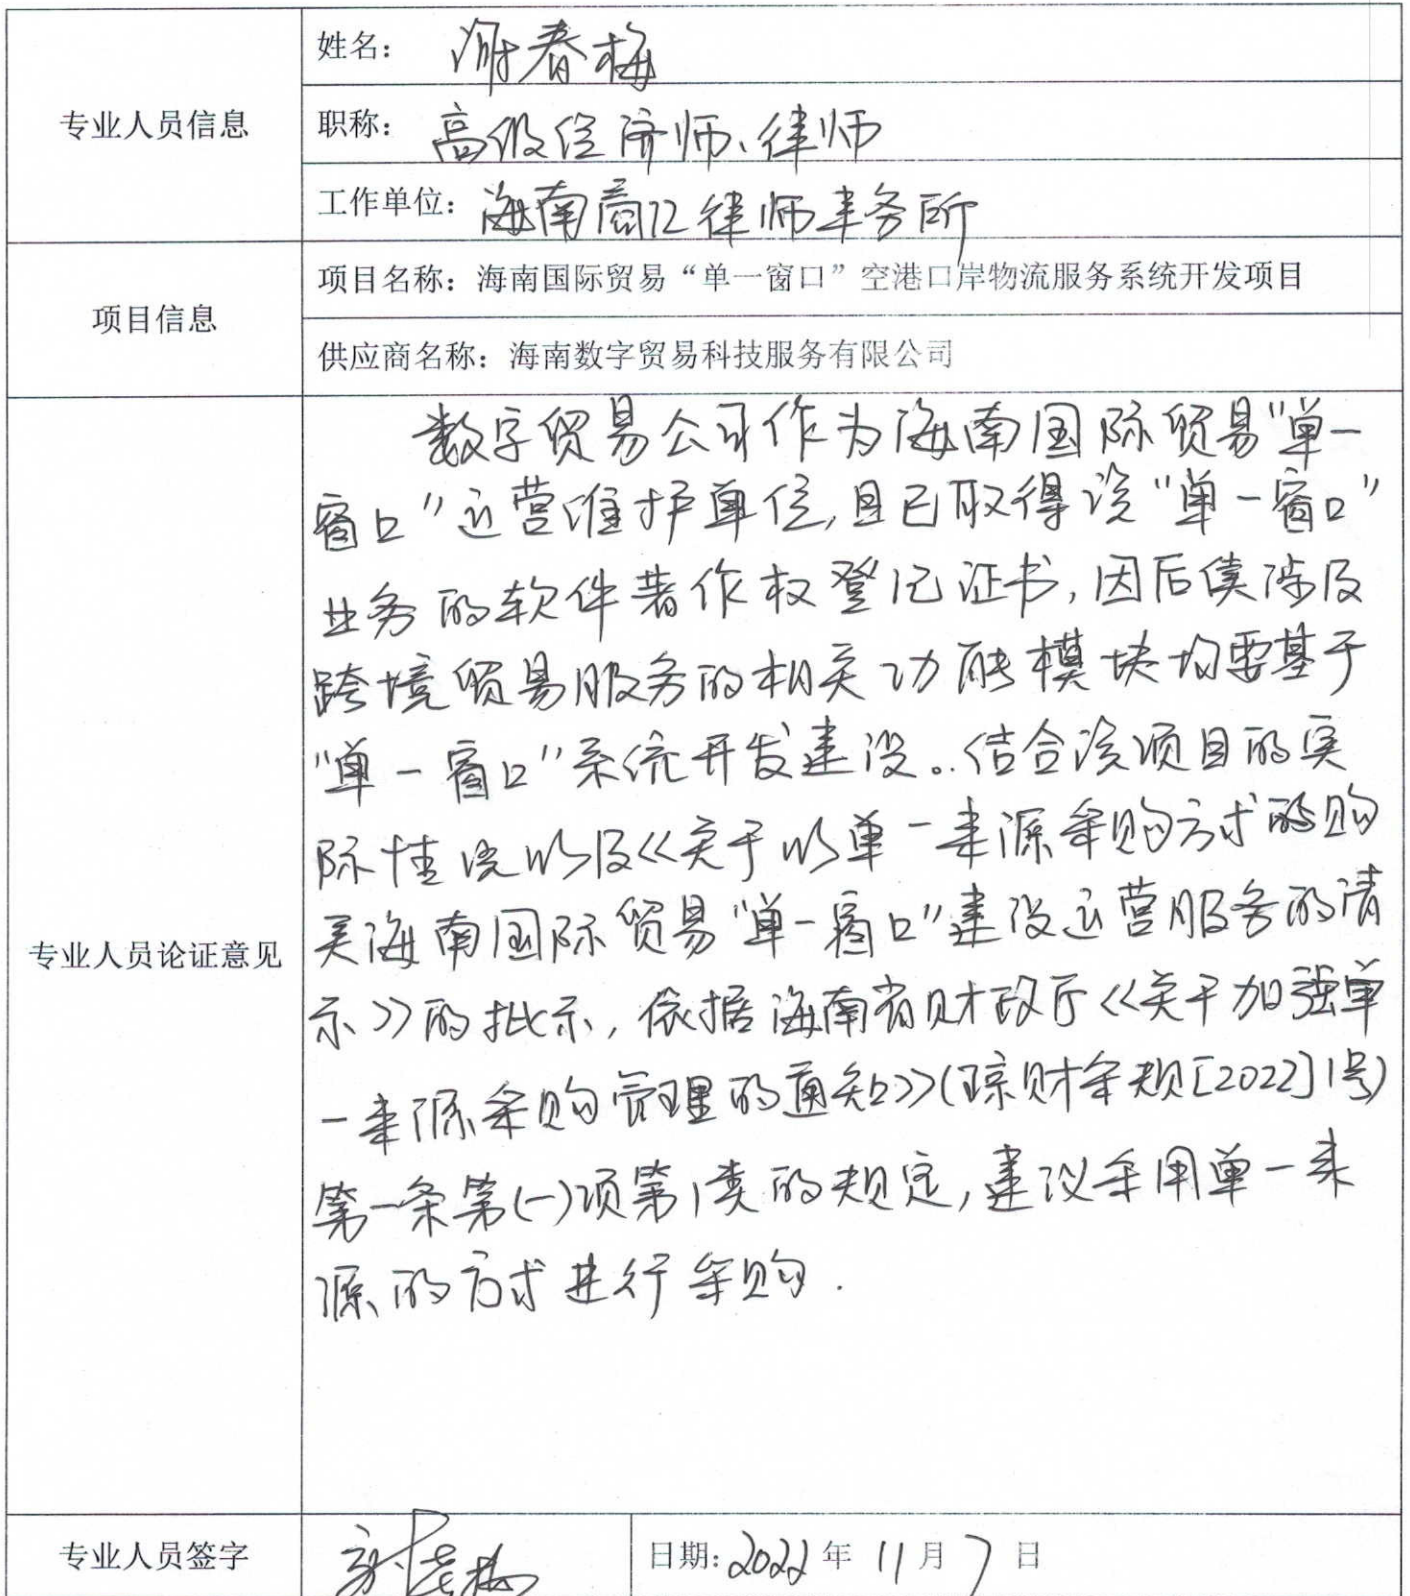 专业人员信息
姓名： 谢春梅
职称： 高级经济师、律师
工作单位： 海南商汇律师事务所
项目信息
项目名称：海南国际贸易“单一窗口”空港口岸物流服务系统开发项目
供应商名称：海南数字贸易科技服务有限公司
专业人员论证意见
数字贸易公司作为海南国际贸易“单一
窗口”运营维护单位,且已取得该“单一窗口”
业务的软件著作权登记证书,因后续涉及
跨境贸易服务的相关功能模块均要基于
“单一窗口”系统开发建设。结合该项目的实
际情况以及《关于以单一来源采购方式购
买海南国际贸易“单一窗口”建设运营服务的请
示》的批示,依据海南省财政厅《关于加强单
一来源采购管理的通知》(琼财采规[2022]1号)
第一条第(一)项第1类的规定,建议采用单一来
源的方式进行采购.
专业人员签字 谢春梅 日期:2022年11月7日